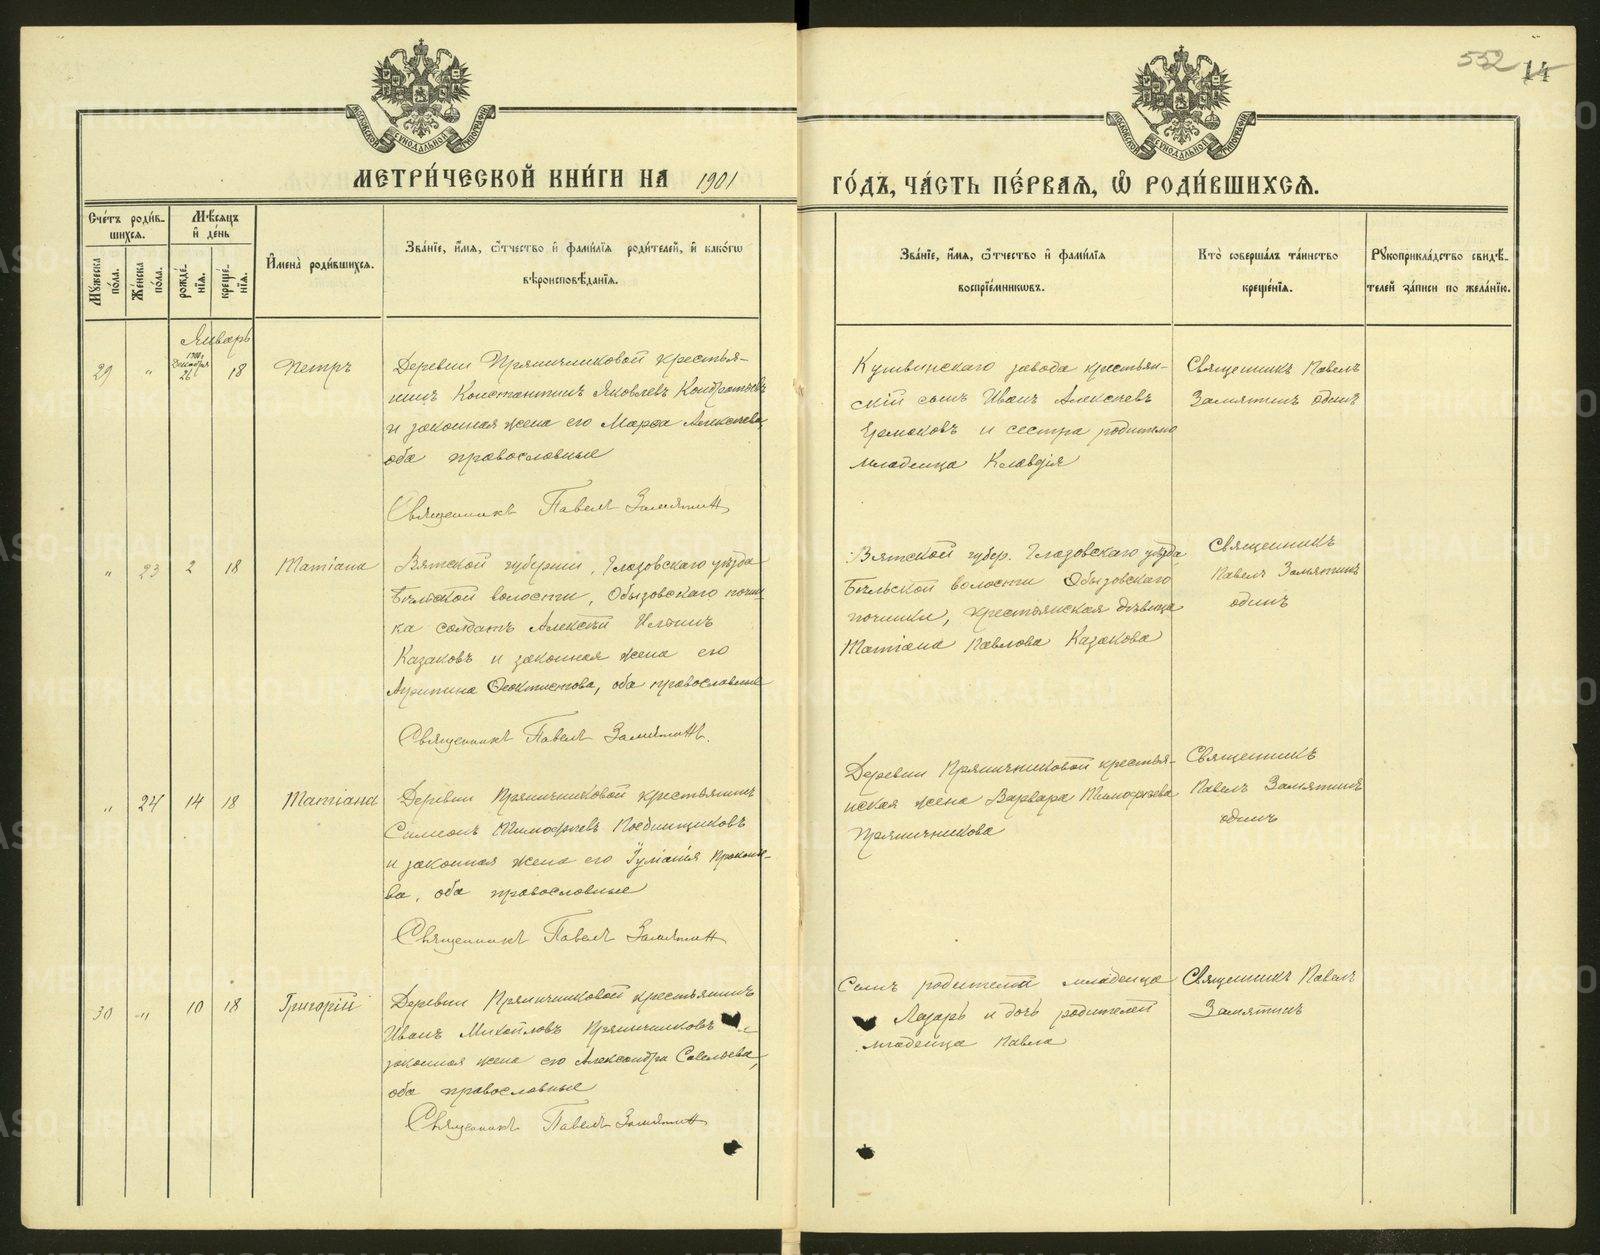 552 14
МОСКОВСКОЙ СУНОДАЛЬНОЙ ТИПОГРАФІИ
МОСКОВСКОЙ СУНОДАЛЬНОЙ ТИПОГРАФІИ
МЕТРИ́ЧЕСКОЙ КНИ́ГИ НА 1901
ГО́ДЪ, ЧА́СТЬ ПЕ́РВАЯ, Ѽ РОДИ́ВШИХСЯ.
Сче́тъ роди́в-
шихся.
Мѣ́сяцъ
и҆ де́нь
Му́жеска
по́ла.
Же́нска
по́ла.
рожде́-
нїя.
креще́-
нїя.
И҆мена̀ роди́вшихся.
Зва́нїе, и҆́мя, ѻ҆́тчество и҆ фами́лїя роди́телей, и҆ како́гѡ
вѣроисповѣ́данїя.
Зва́нїе, и҆́мя, ѻ҆́тчество и҆ фами́лїя
воспрїе́мникѡвъ.
Кто̀ соверша́лъ та́инство
креще́нїя.
Рукоприкла́дство свидѣ́-
телей за́писи по жела́нїю.
Январь
29 " 1900 г. Декабря 26 18 Петръ
Деревни Пряничниковой крестья-
нинъ Константинъ Яковлевъ Кондратьевъ
и законная жена его Марфа Алексѣева,
оба православные
Священникъ Павелъ Замятин
Кушвинскаго завода крестьян-
скій сынъ Иванъ Алексѣевъ
Ермаковъ и сестра родителю
младенца Клавдія
Священникъ Павелъ
Замятинъ одинъ
" 23 2 18 Татіана
Вятской губерніи, Глазовскаго уѣзда
Бѣльской волости, Обызовскаго почин-
ка солдатъ Алексѣй Ильинъ
Казаковъ и законная жена его
Агрипина Феоктистова, оба православные
Священникъ Павелъ Замятинъ.
Вятской губер. Глазовскаго уѣзда
Бѣльской волости Обызовскаго
починки, крестьянская дѣвица
Татіана Павлова Казакова
Священникъ
Павелъ Замятинъ
одинъ
" 24 14 18 Татіана
Деревни Пряничниковой крестьянинъ
Симеонъ Тимофѣевъ Посдинщиковъ
и законная жена его Іуліанія Прокопье-
ва, оба православные
Священникъ Павелъ Замятин
Деревни Пряничниковой крестья-
нская жена Варвара Тимофѣева
Пряничникова
Священникъ
Павелъ Замятинъ
одинъ
30 " 10 18 Григорій
Деревни Пряничниковой крестьянинъ
Иванъ Михайловъ Пряничниковъ и
законная жена его Александра Савельева,
оба православные
Священникъ Павелъ Замятин
Сынъ родителей младенца
Лазарь и дочь родителей
младенца Павла
Священникъ Павелъ
Замятинъ
METRIKI.GASO-URAL.RU